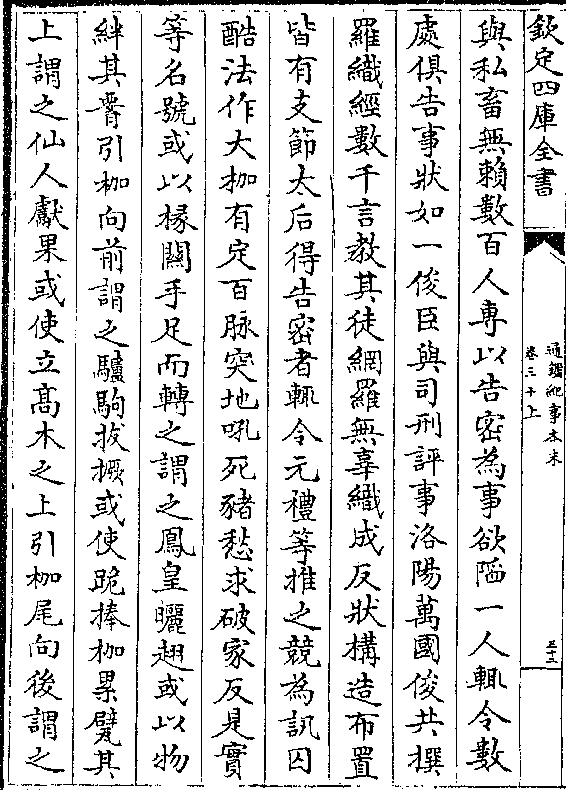 欽定四庫全書
通鑑紀事本末
卷三十上
三十三
與私畜無賴數百人專以告密為事欲陷一人輒令數
處俱告事狀如一俊臣與司刑評事洛陽萬國俊共撰
羅織經數千言教其徒網羅無辜織成反狀構造布置
皆有支節太后得告密者輒令元禮等推之競為訊囚
酷法作大枷有定百脉突地吼死豬愁求破家反是實
等名號或以椽關手足而轉之謂之鳳皇曬翅或以物
絆其𦝫引枷向前謂之驢駒拔橛或使跪捧枷累甓其
上謂之仙人獻果或使立髙木之上引枷尾向後謂之